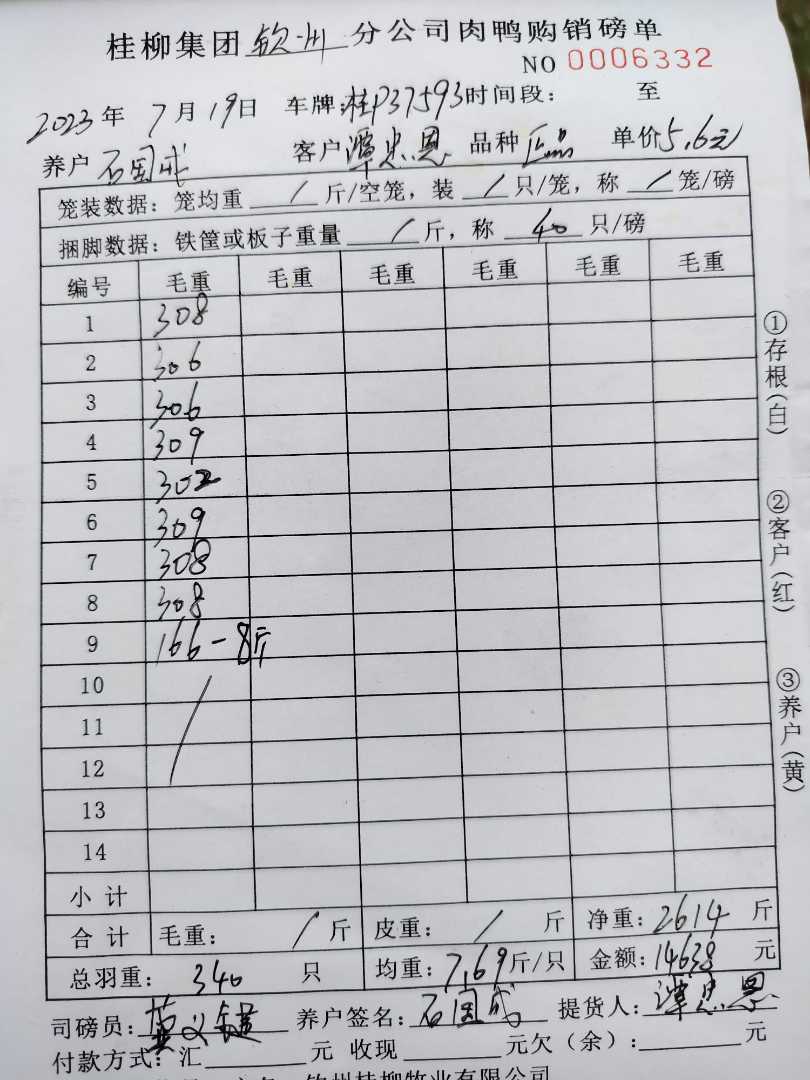 桂柳集团 钦州 分公司肉鸭购销磅单
NO 0006332
2023年 7月19日 车牌:桂P37593 时间段: 至
养户 石国成 客户 谭忠恩 品种 正品 单价 5.6元
笼装数据: 笼均重 / 斤/空笼, 装 / 只/笼, 称 / 笼/磅
捆脚数据: 铁筐或板子重量 / 斤, 称 40 只/磅
编号 毛重 毛重 毛重 毛重 毛重 毛重
1 308
2 306
3 306
4 309
5 302
6 309
7 308
8 308
9 166-8斤
10
11
12
13
14
小 计
合 计 毛重: / 斤 皮重: / 斤 净重: 2614 斤
总羽重: 340 只 均重: 7.69 斤/只 金额: 14638 元
司磅员: 养户签名: 石国成 提货人: 谭忠恩
付款方式: 汇 元 收现 元欠(余): 元
钦州桂柳牧业有限公司
①存根(白)
②客户(红)
③养户(黄)